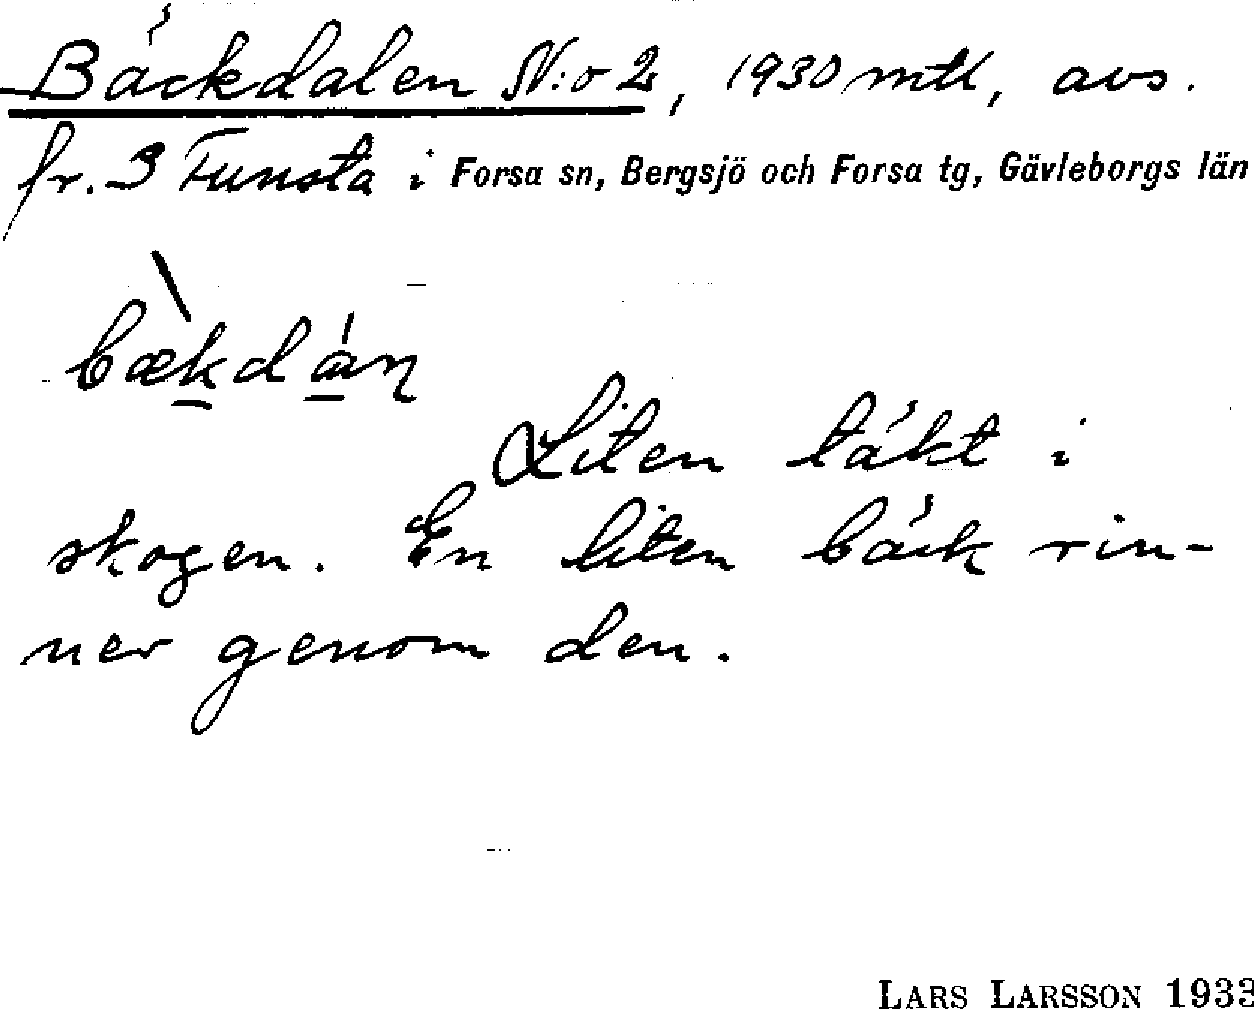 Bäckdalen N:o 2, 1930 mtl, avs.
fr. 3 Funsta i Forsa sn, Bergsjö och Forsa tg, Gävleborgs län
bæ̀kdáṇ
Liten täkt i
skogen. En liten bäck rin-
ner genom den.
LARS LARSSON 1933